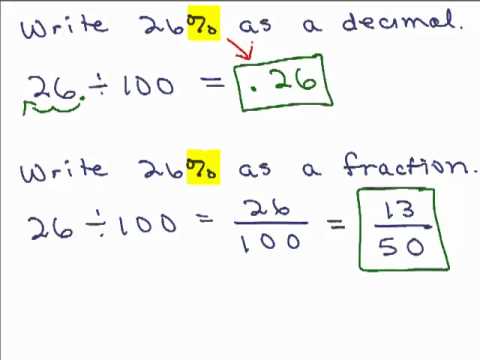 Write 26% as a decimal.
26. ÷ 100 = .26
Write 26% as a fraction.
26 ÷ 100 = 26/100 = 13/50